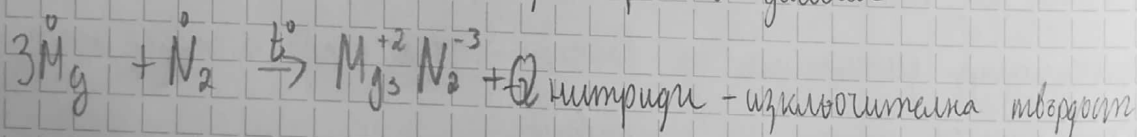 3Mg⁰ + N₂⁰ →t° Mg₃⁺²N₂⁻³ + Q нитриди - изключителна твърдост